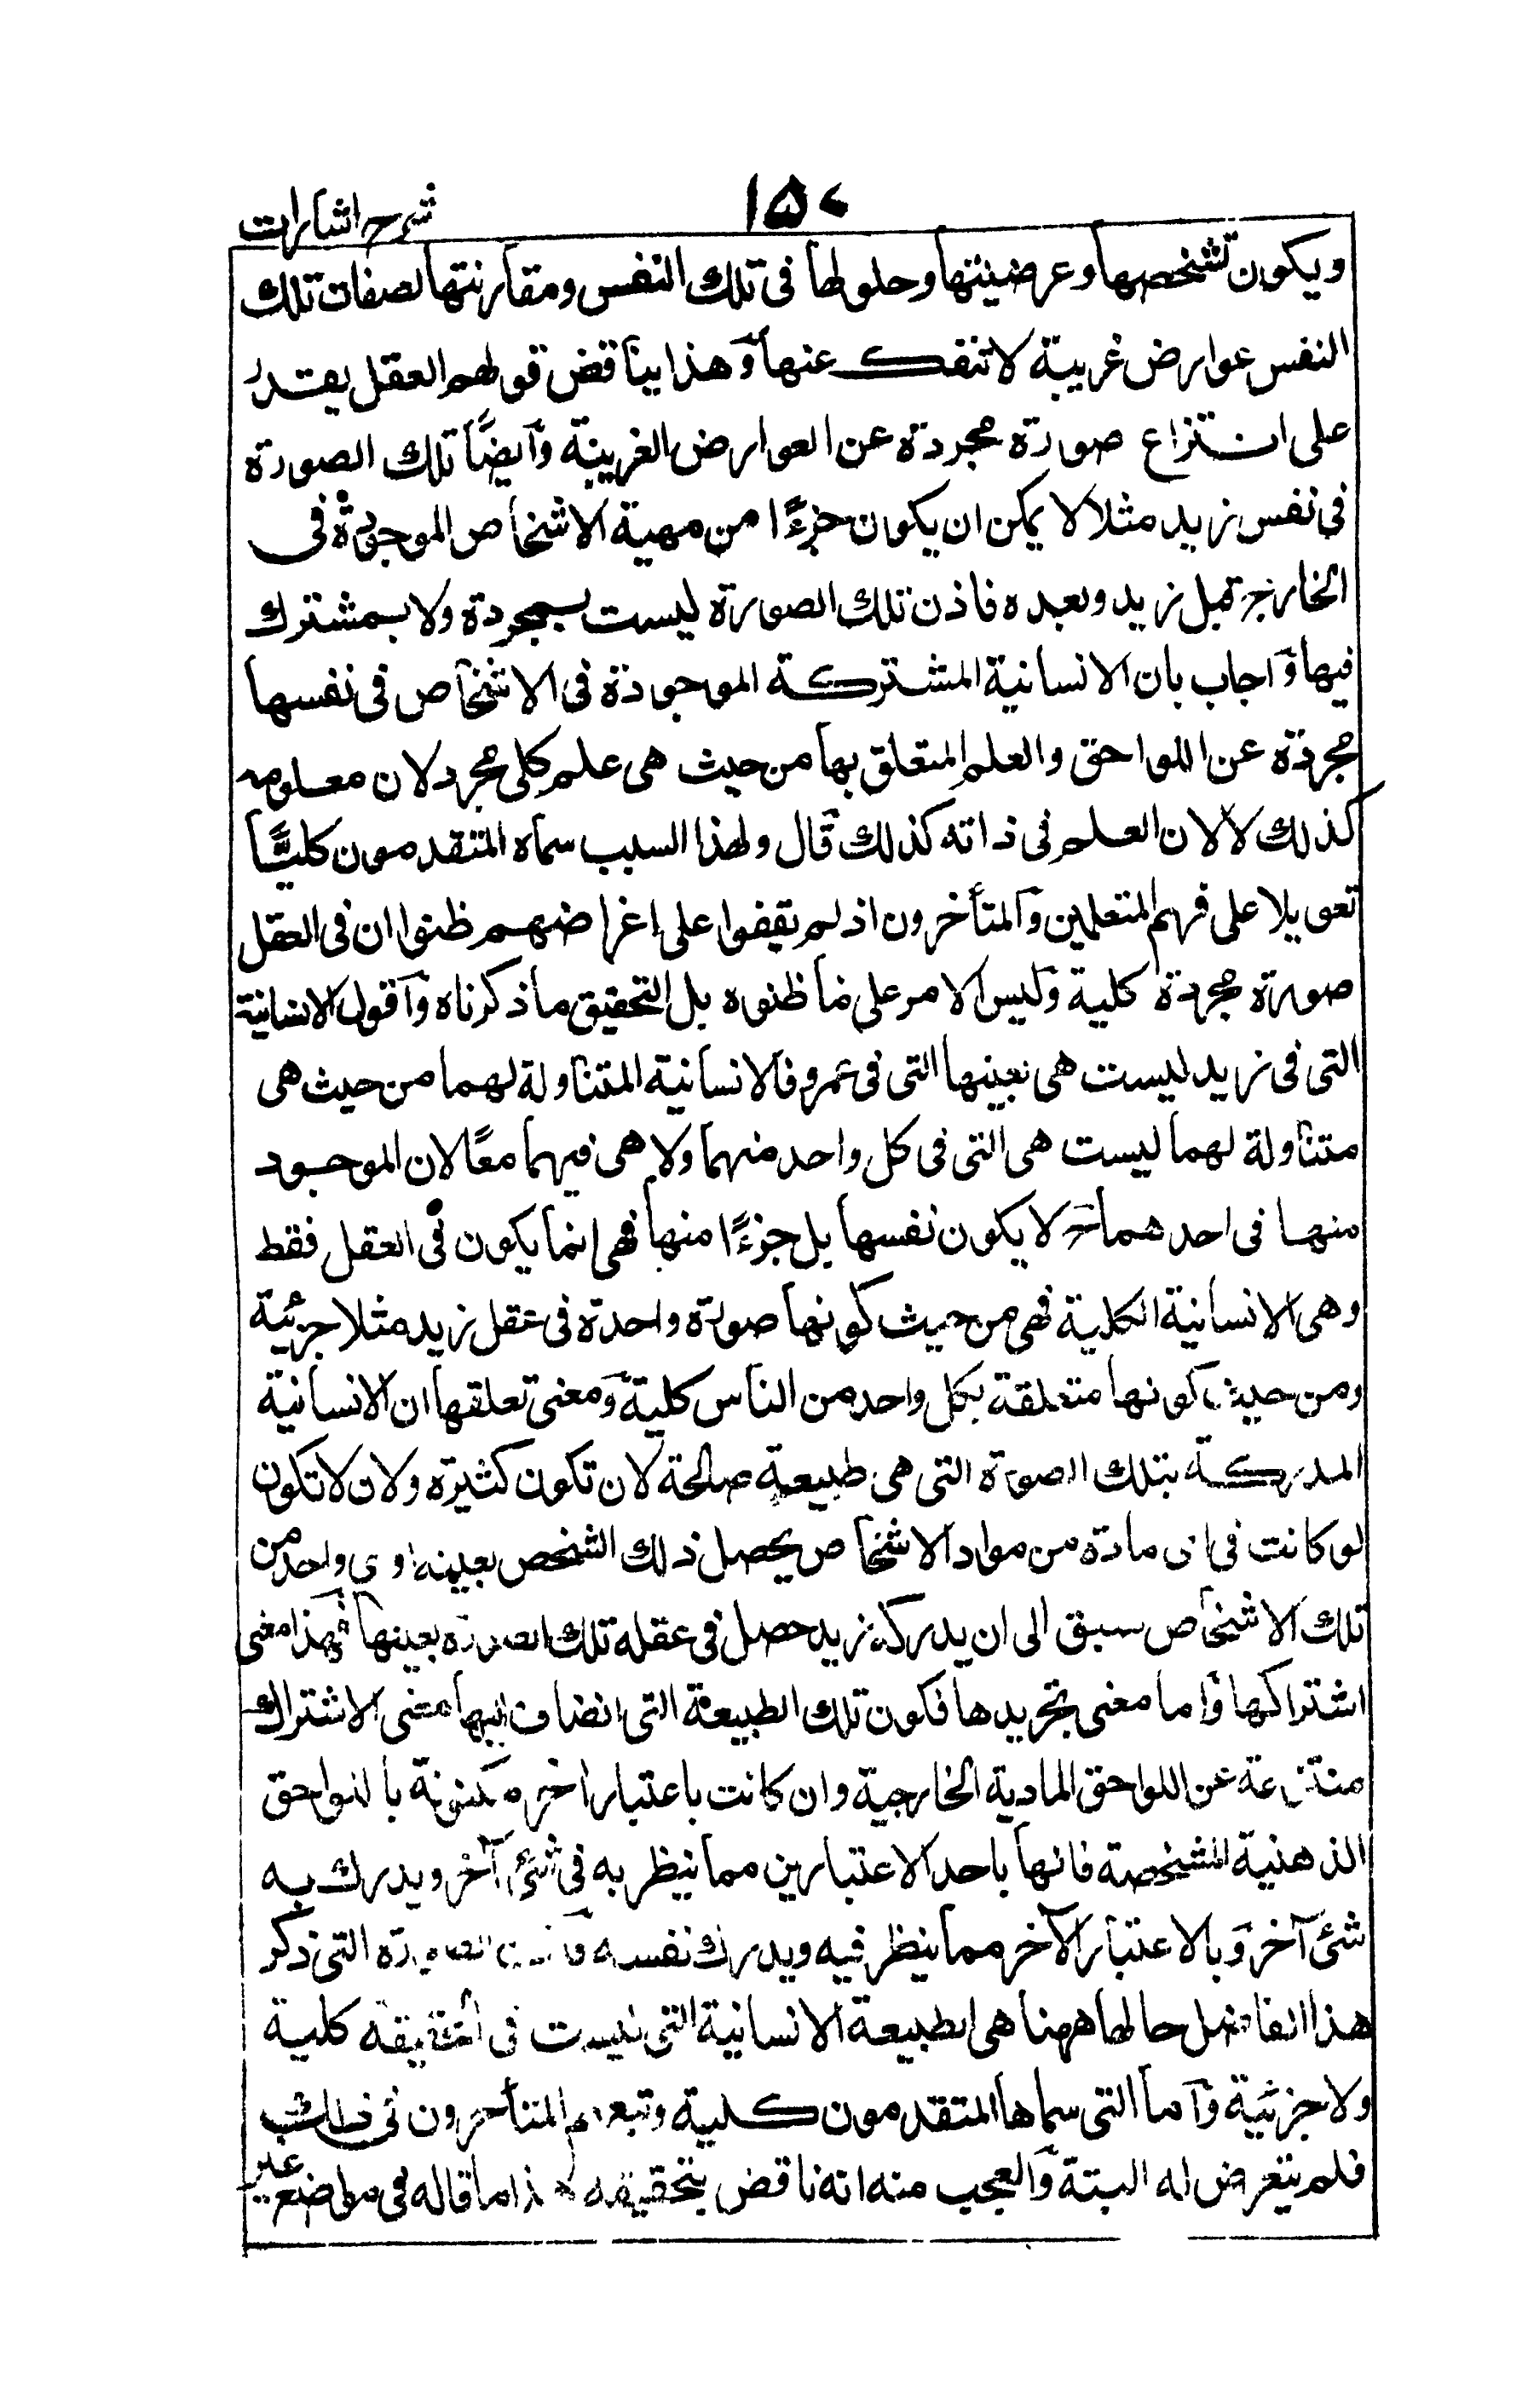 شرح اشارات
۱۵۰
ويكون تشخصها وعرضيتها وحلولها فى تلك النفس ومقارنتها لصفات تلك
النفس عوارض غريبة لا تنفك عنها وهذا يناقض قولهم العقل يقتدر
على انتزاع صورة مجردة عن العوارض الغريبة وأيضًا تلك الصورة
فى نفس زيد مثلا لا يمكن ان يكون جزءًا من مهية الاشخاص الموجودة فى
الخارج قبل زيد وبعده فاذن تلك الصورة ليست بمجردة ولا بمشترك
فيها وَاجاب بان الانسانية المشتركة الموجودة فى الاشخاص فى نفسها
مجردة عن اللواحق والعلم المتعلق بها من حيث هى علم كلى مجرد لان معلومه
كذلك لا لان العلم فى ذاته كذلك قال ولهذا السبب سماه المتقدمون كليًّا
تعويلا على فهم المتعلمين وَالمتأخرون اذ لم يقفوا على اغراضهم ظنوا ان فى العقل
صورة مجردة كلية وَليس الامر على ما ظنوه بل التحقيق ما ذكرناه وَاقول الانسانية
التى فى زيد ليست هى بعينها التى فى عمرو فالانسانية المتناولة لهما من حيث هى
متناولة لهما ليست هى التى فى كل واحد منهما ولا هى فيهما معًا لان الموجود
منها فى احدهما لا يكون نفسها بل جزءًا منها فهى انما يكون فى العقل فقط
وهى الانسانية الكلية فهى من حيث كونها صورة واحدة فى عقل زيد مثلا جزئية
ومن حيث كونها متعلقة بكل واحد من الناس كلية وَمعنى تعلقها ان الانسانية
المدركة بتلك الصورة التى هى طبيعة صالحة لان تكون كثيرة ولان لا تكون
لو كانت فى اى مادة من مواد الاشخاص يحصل ذلك الشخص بعينه او اى واحد من
تلك الاشخاص سبق الى ان يدركه زيد حصل فى عقله تلك الصورة بعينها فهذا معنى
اشتراكها وَاما معنى تجريدها فكون تلك الطبيعة التى انضاف اليها معنى الاشتراك
منتزعة عن اللواحق المادية الخارجية وان كانت باعتبار اخر مكنونة باللواحق
الذهنية المشخصة فانها باحد الاعتبارين مما ينظر به فى شئ آخر ويدرك به
شئ آخر وَبالاعتبار الآخر مما ينظر فيه ويدرك نفسه الصورة التى ذكر
هذا الفاضل حالها ههنا هى الطبيعة الانسانية التى ليست فى الحقيقة كلية
ولا جزئية وَاما التى سماها المتقدمون كلية وتبعهم المتأخرون فى ذلك
فلم يتعرض له البتة وَالعجب منه انه ناقض بتحقيقه هذا ما قاله فى مواضع غير